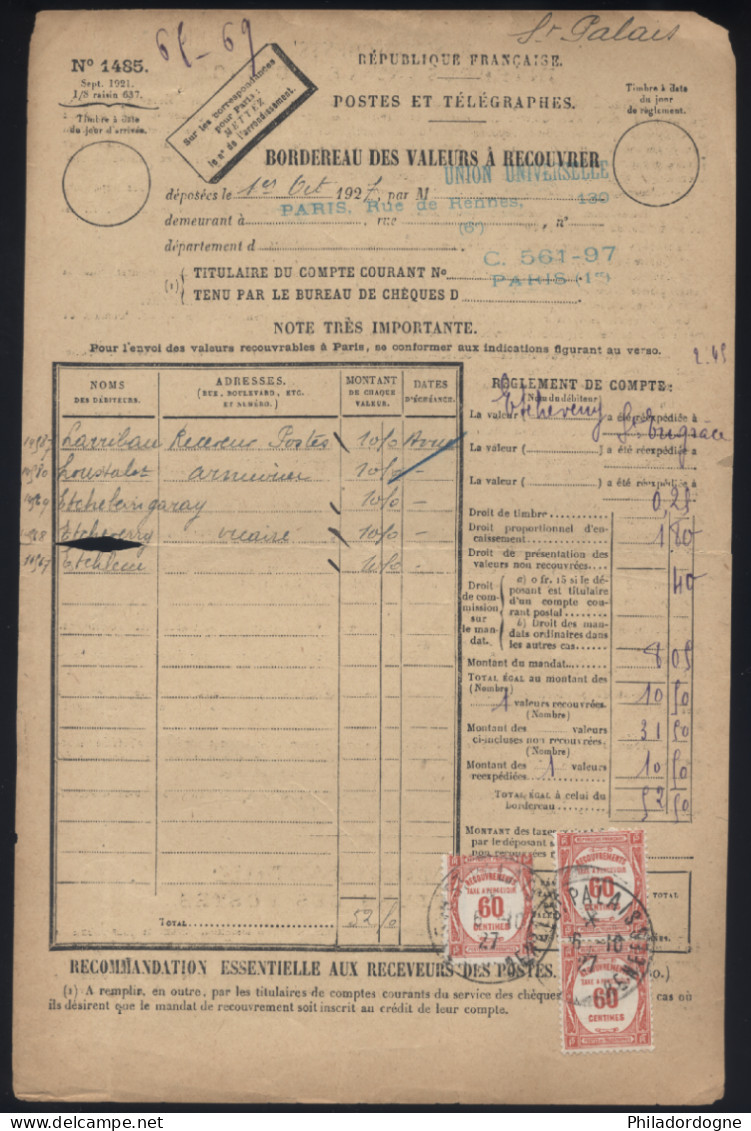 65-69
St Palais
Nº 1485.
Sept. 1921.
1/3 raisin 637.
Timbre à date
du jour d'arrivée.
Sur les correspondances
pour Paris:
METTEZ
le nº de l'arrondissement.
RÉPUBLIQUE FRANÇAISE.
POSTES ET TÉLÉGRAPHES.
Timbre à date
du jour
de règlement.
BORDEREAU DES VALEURS À RECOUVRER
déposées le 1er Oct 1927, par M UNION UNIVERSELLE
demeurant à PARIS, Rue de Rennes, 130 rue nº
(6e)
département d
C. 561-97
(1) TITULAIRE DU COMPTE COURANT Nº
PARIS (15)
TENU PAR LE BUREAU DE CHÈQUES D
NOTE TRÈS IMPORTANTE.
Pour l'envoi des valeurs recouvrables à Paris, se conformer aux indications figurant au verso.
2.45
NOMS
DES DÉBITEURS.
ADRESSES.
(RUE, BOULEVARD, ETC.
ET NUMÉRO.)
MONTANT
DE CHAQUE
VALEUR.
DATES
D'ÉCHÉANCE.
Larribau Receveur Postes 10 50
Loustalot armurier 10 50 -
Etchebengaray 10 50 -
Etcheverry vicaire 10 50 -
10 50 -
TOTAL 52 50
RÈGLEMENT DE COMPTE:
Nom du débiteur
La valeur ( Etcheverry ) a été réexpédiée à
La valeur ( ) a été réexpédiée à
La valeur ( ) a été réexpédiée à
Droit de timbre 0,25
Droit proportionnel d'en-
caissement 1 80
Droit de présentation des
valeurs non recouvrées
40
Droit
de com-
mission
sur
le man-
dat.
a) 0 fr. 15 si le dé-
posant est titulaire
d'un compte cou-
rant postal
b) Droit des man-
dats ordinaires dans
les autres cas.
Montant du mandat 8 05
TOTAL ÉGAL au montant des
(Nombre)
1 valeurs recouvrées. 10 50
(Nombre)
Montant des valeurs
ci-incluses non recouvrées. 31 50
(Nombre)
Montant des 1 valeurs
réexpédiées 10 50
TOTAL ÉGAL à celui du
bordereau 52 50
MONTANT des taxes
par le déposant
non recouvrées
TOTAL.
RECOUVREMENTS
TAXE A PERCEVOIR
60
CENTIMES
RECOUVREMENTS
60
RECOUVREMENTS
TAXE A PERCEVOIR
60
CENTIMES
6 -10
27
PALAIS
6 -10
27
RECOMMANDATION ESSENTIELLE AUX RECEVEURS DES POSTES.
(1) A remplir, en outre, par les titulaires de comptes courants du service des chèques cas où
ils désirent que le mandat de recouvrement soit inscrit au crédit de leur compte.
delcampe.net
Philadordogne